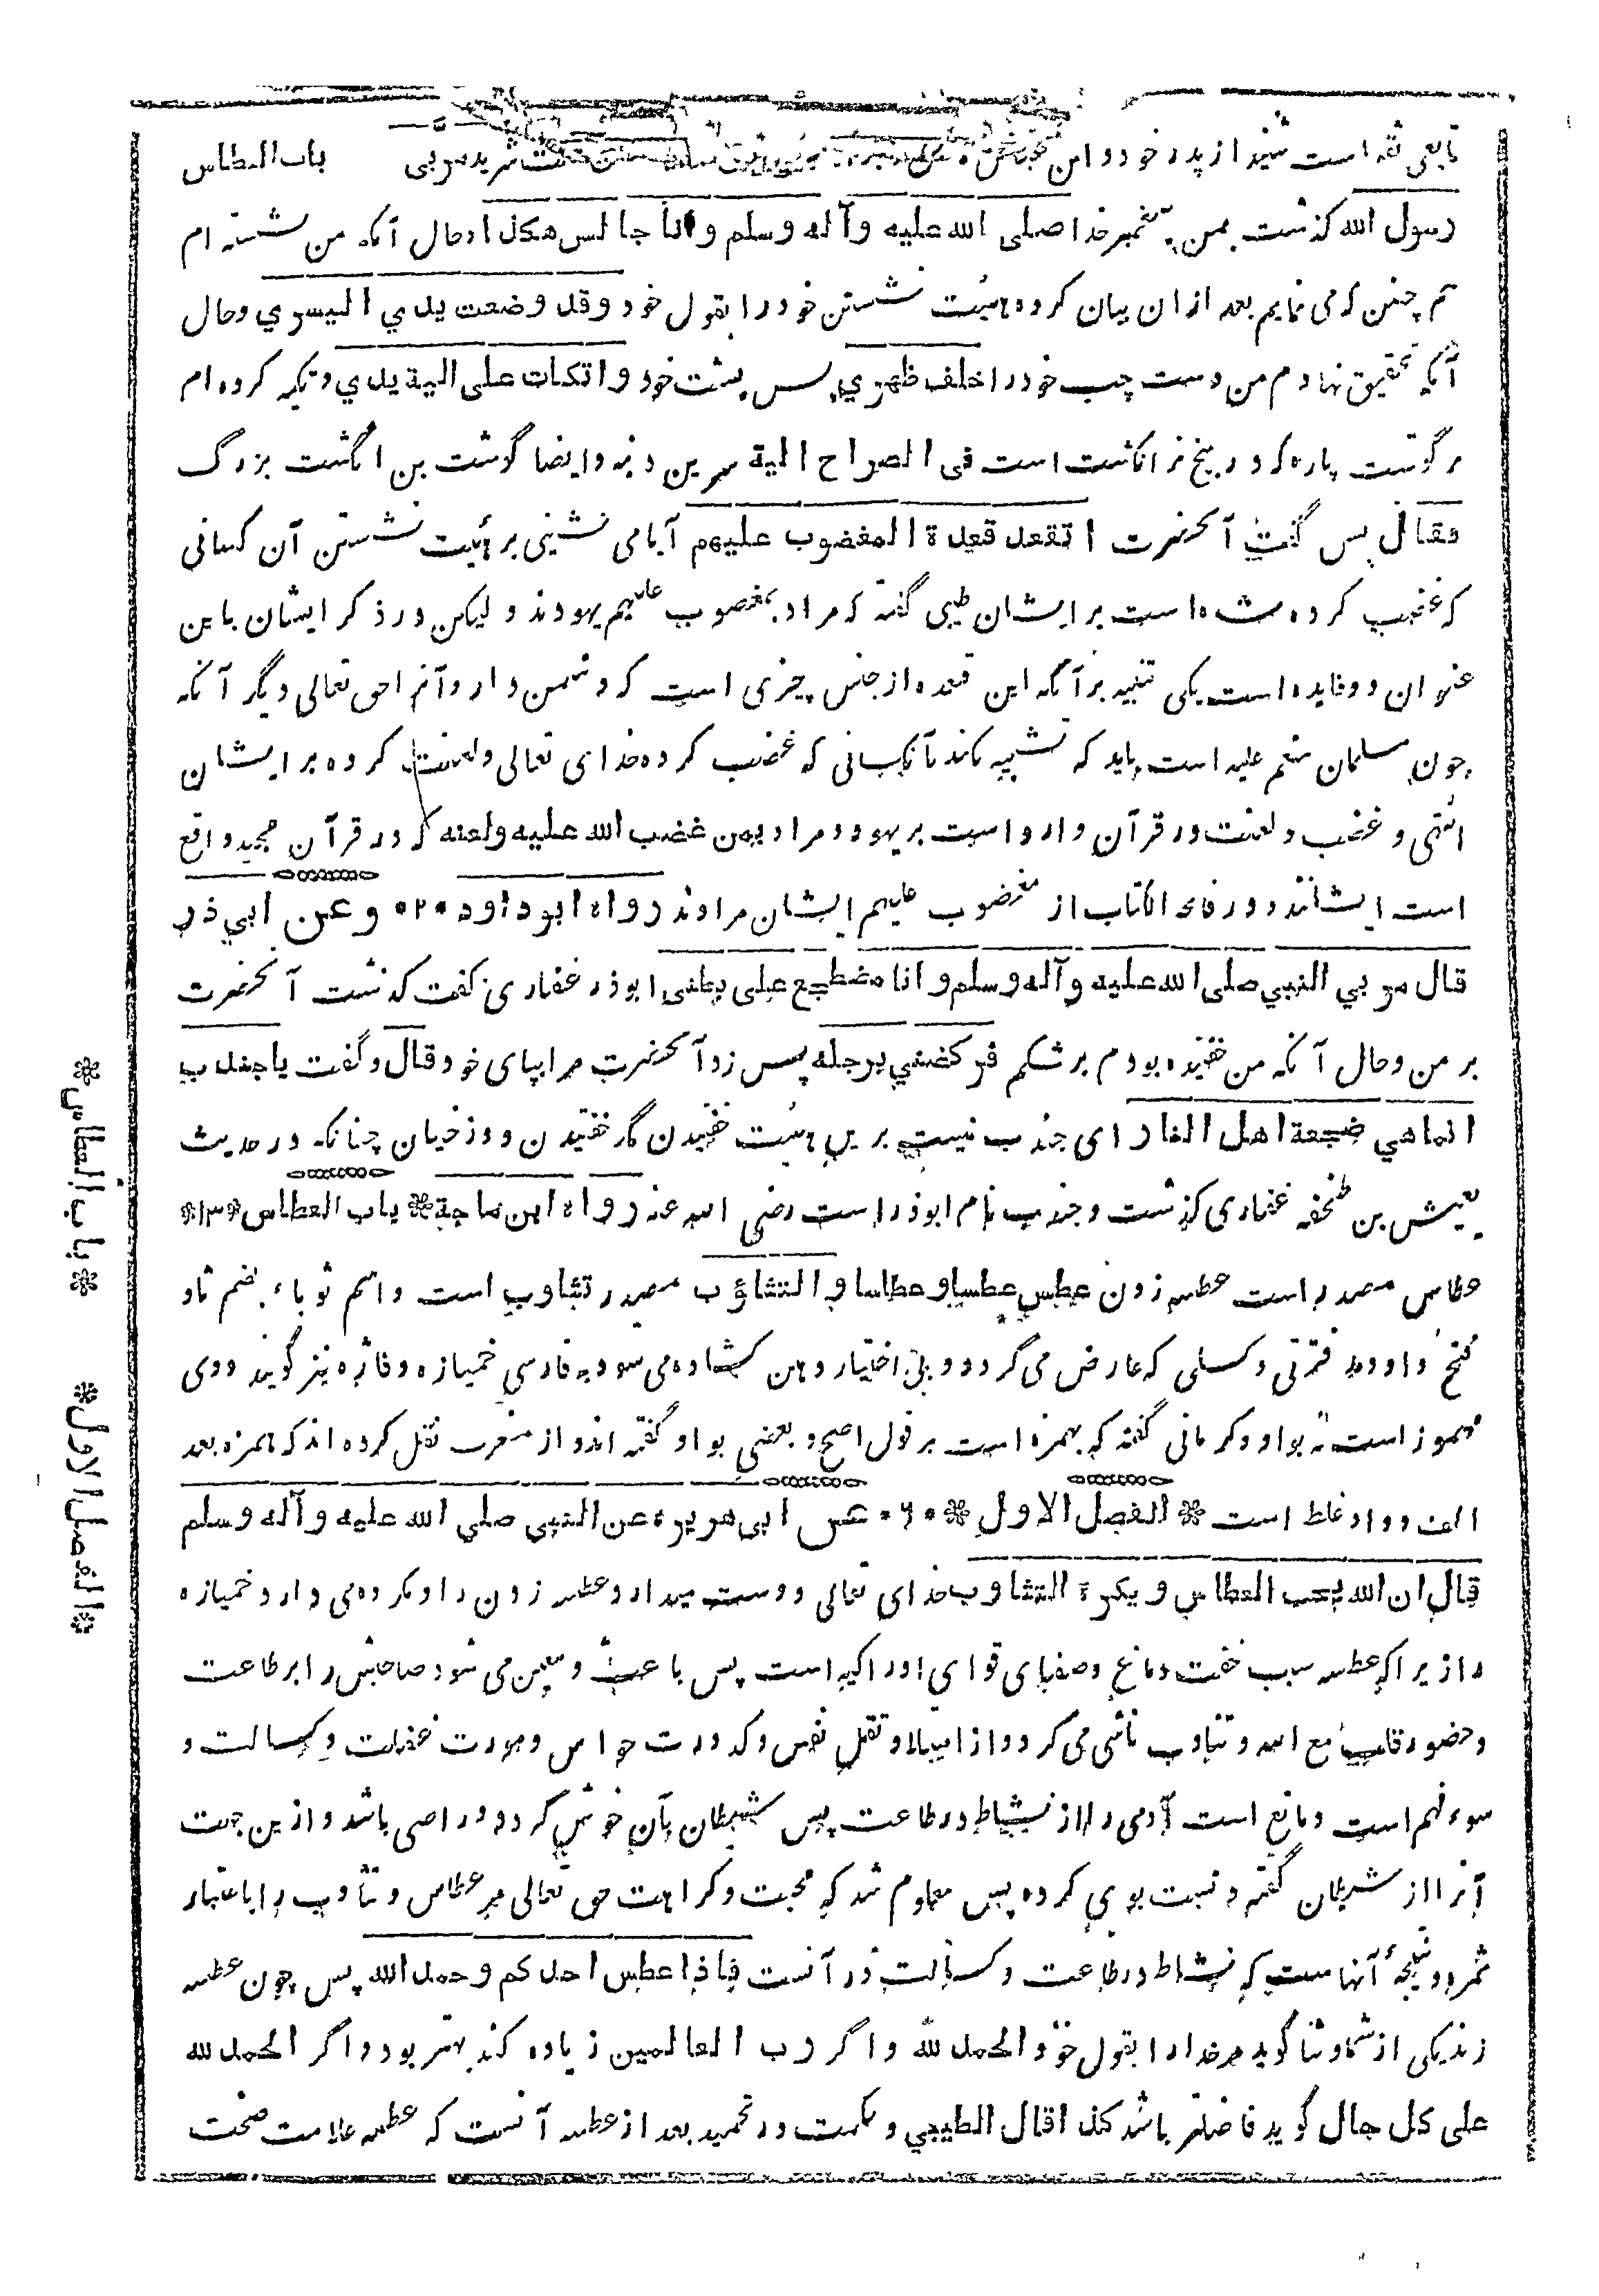 باب العطاس
تابعی ثقه است شنید از پدر خود و ابن گفت شرید مر بی
رسول الله گذشت بمن پیغمبر خدا صلی الله علیه و آله و سلم و انا جالس هکذا و حال آنکه من نشسته ام
هم چنین که می نمایم بعد ازان بیان کرده هیئت نشستن خود را بقول خود و قد وضعت یدي الیسري و حال
آنکه تحقیق نهادم من دست چپ خود را خلف ظهري پس پشت خود و اتکات علی الیة یدي و تکیه کرده ام
بر گوشت پاره که در بیخ نر انگشت است فی الصراح الیة سرین دنبه و ایضا گوشت بن انگشت بزرگ
فقال پس گفت آنحضرت اتقعد قعدة المغضوب علیهم آیا می نشینی بر هیئت نشستن آن کسانی
که غضب کرده شده است بر ایشان طیبی گفته که مراد بمغضوب علیهم یهودند و لیکن در ذکر ایشان باین
عنوان دو فایده است یکی تنبیه بر آنکه این قعده از جنس چیزی است که دشمن دارد آنرا حق تعالی دیگر آنکه
چون مسلمان منعم علیه است باید که تشبیه نکند تا بکسانی که غضب کرده خدای تعالی و لعنت کرده بر ایشان
انتهی و غضب و لعنت در قرآن وارد است بر یهود و مراد بمن غضب الله علیه و لعنه که در قرآن مجید واقع
است ایشانند و در فاتحة الکتاب از مغضوب علیهم ایشان مرادند رواه ابو داود ٢٠ و عن ابي ذر
قال مر بي النبي صلی الله علیه و آله و سلم و انا مضطجع علی بطنی ابوذر غفاری گفت که گذشت آنحضرت
بر من و حال آنکه من خفتیده بودم بر شکم فرکضني برجله پس زد آنحضرت مرا بپای خود و قال و گفت یا جندب
انما هي ضجعة اهل النار ای جندب نیست برین هیئت خفتیدن مگر خفتیدن دوزخیان چنانکه در حدیث
یعیش بن طخفه غفاری گذشت و جندب نام ابوذر است رضی الله عنه رواه ابن ماجة * باب العطاس * ١٣ *
عطاس مصدر است عطسه زدن عطس عطسا و عطاسا و التثاؤب مصدر تثاوب است و اسم ثوباء بضم ثا و
فتح واو و مد فترتی و کسلی که عارض می گردد و بی اختیار دهن کشاده می شود به فارسی خمیازه و فاژه نیز گویند و وی
مهموز است نه بواو و کرمانی گفته که بهمزه است بر قول اصح و بعضی بواو گفته اند و از مغرب نقل کرده اند که همزه بعد
الف و واو غلط است * الفصل الاول * ١ عن ابی هریره عن النبی صلی الله علیه و آله و سلم
قال ان الله یحب العطاس و یکرة التثاوب خدای تعالی دوست میدارد عطسه زدن را و مکروه می دارد خمیازه
را زیرا که عطسه سبب خفت دماغ و صفای قوای ادراکیه است پس باعث و معین می شود صاحبش را بر طاعت
و حضور قلب مع الله و تثاوب ناشی می گردد از امتلا و ثقل نفس و کدورت حواس و مورث غفلت و کسالت و
سوء فهم است و مانع است آدمی را از نشاط در طاعت پس شیطان بآن خوش گردد و راضی باشد و ازین جهت
آنرا از شیطان گفته و نسبت بوی کرده پس معلوم شد که محبت و کراهت حق تعالی مر عطاس و تثاوب را باعتبار
ثمره و نتیجهٔ آنهاست که نشاط در طاعت و کسالت در آنست فاذا عطس احدکم و حمد الله پس چون عطسه
زند یکی از شما و ثنا گوید مر خدا را بقول خود الحمد لله و اگر رب العالمین زیاده کند بهتر بود و اگر الحمد لله
علی کل حال گوید فاضلتر باشد کذا قال الطیبي و حکمت در تحمید بعد از عطسه آنست که عطسه علامت صحت
* باب العطاس *
* الفصل الاول *